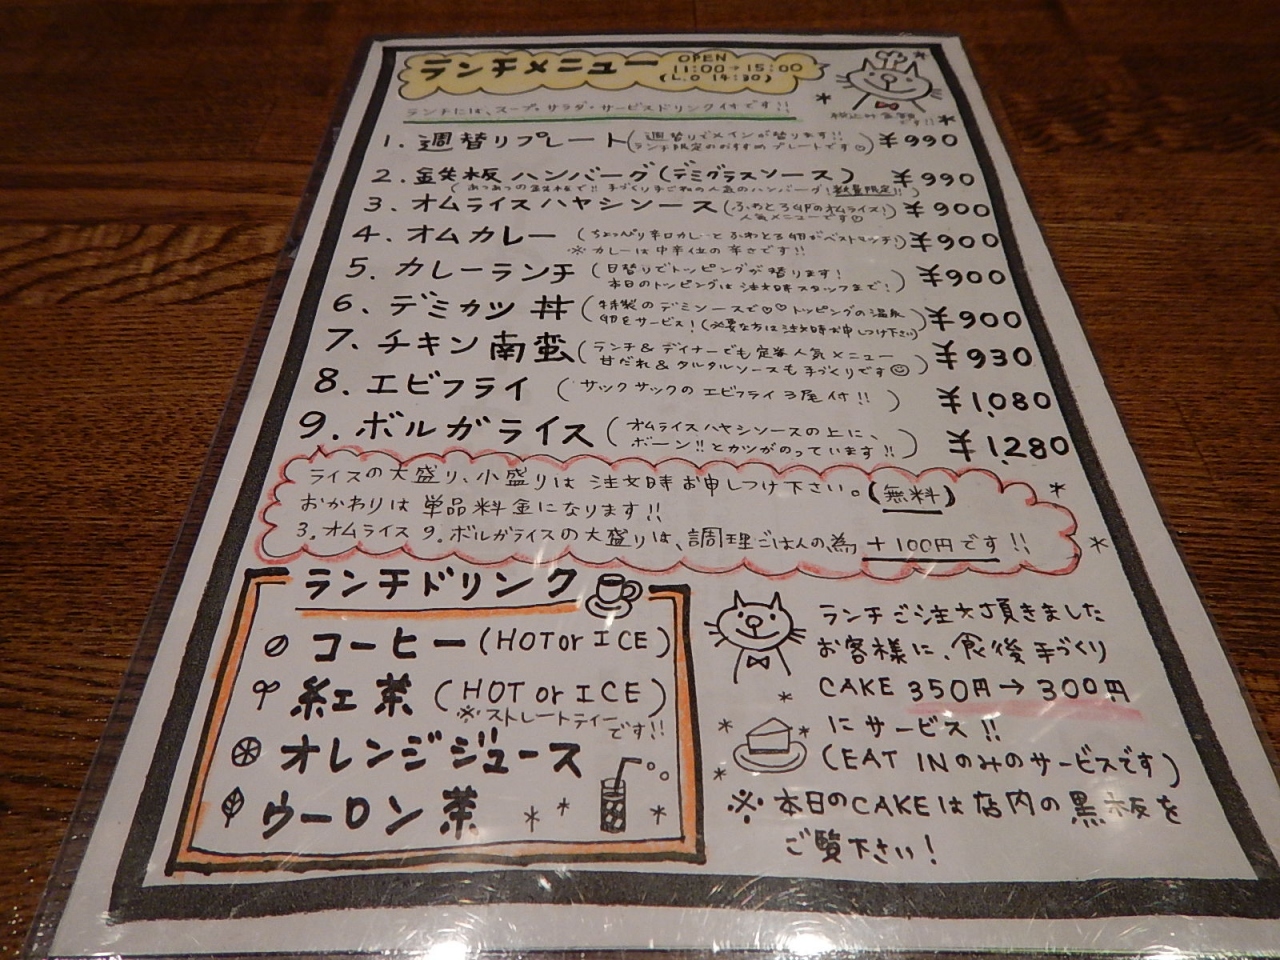 ランチメニュー
OPEN
11:00→15:00
(L.O 14:30)
ランチには、スープ・サラダ・サービスドリンク付です!!
税込み金額
です!!
1. 週替りプレート(週替りでメインが替ります!! ¥990
ランチ限定のおすすめプレートです)
2. 鉄板ハンバーグ(デミグラスソース) ¥990
(あつあつの鉄板で!! 手づくり手ごねの人気のハンバーグ! 数量限定!!)
3. オムライスハヤシソース(ふわとろ卵のオムライス! ¥900
人気メニューです♡)
4. オムカレー(ちょっぴり辛口カレーとふわとろ卵がベストマッチ!) ¥900
※カレーは中辛位の辛さです!!
5. カレーランチ(日替りでトッピングが替ります! ¥900
本日のトッピングは注文時スタッフまで!)
6. デミカツ丼(特製のデミソースで♡♡トッピングの温泉 ¥900
卵をサービス!(必要な方は注文時お申しつけ下さい))
7. チキン南蛮(ランチ&ディナーでも定番人気メニュー ¥930
甘だれ&タルタルソースも手づくりです☺)
8. エビフライ(サックサックのエビフライ3尾付!!) ¥1,080
9. ボルガライス(オムライスハヤシソースの上に、 ¥1,280
ボーン!!とカツがのっています!!)
ライスの大盛り、小盛りは注文時お申しつけ下さい。(無料)
おかわりは単品料金になります!!
3.オムライス 9.ボルガライスの大盛りは、調理ごはんの為+100円です!!
ランチドリンク
コーヒー(HOT or ICE)
紅茶(HOT or ICE)
※ストレートティー
です!!
オレンジジュース
ウーロン茶
ランチご注文頂きました
お客様に、食後手づくり
CAKE 350円→300円
にサービス!!
(EAT INのみのサービスです)
※本日のCAKEは店内の黒板を
ご覧下さい!